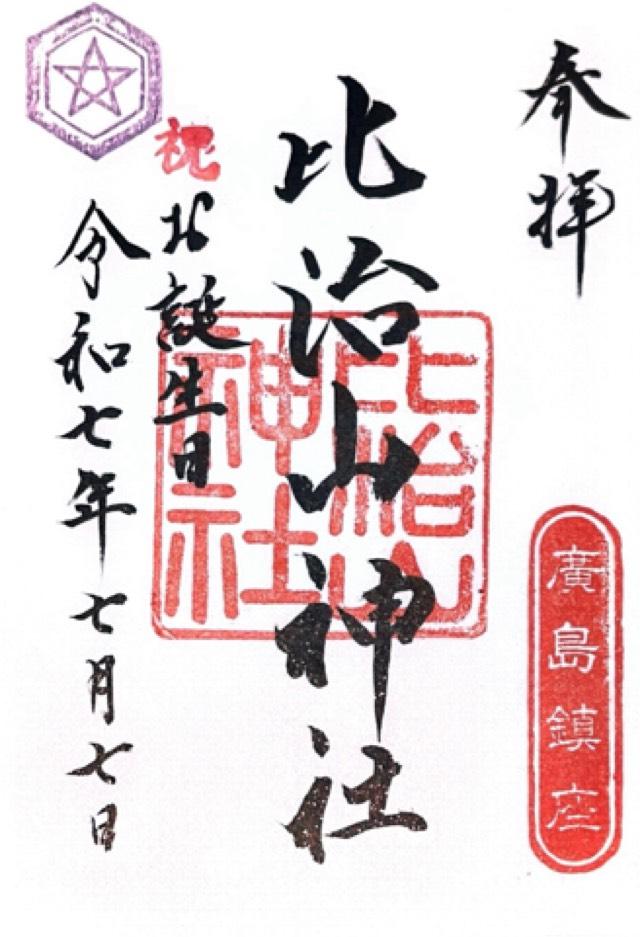 奉拝
廣島鎮座
比治山神社
比治山
神社
祝お誕生日
令和七年七月七日